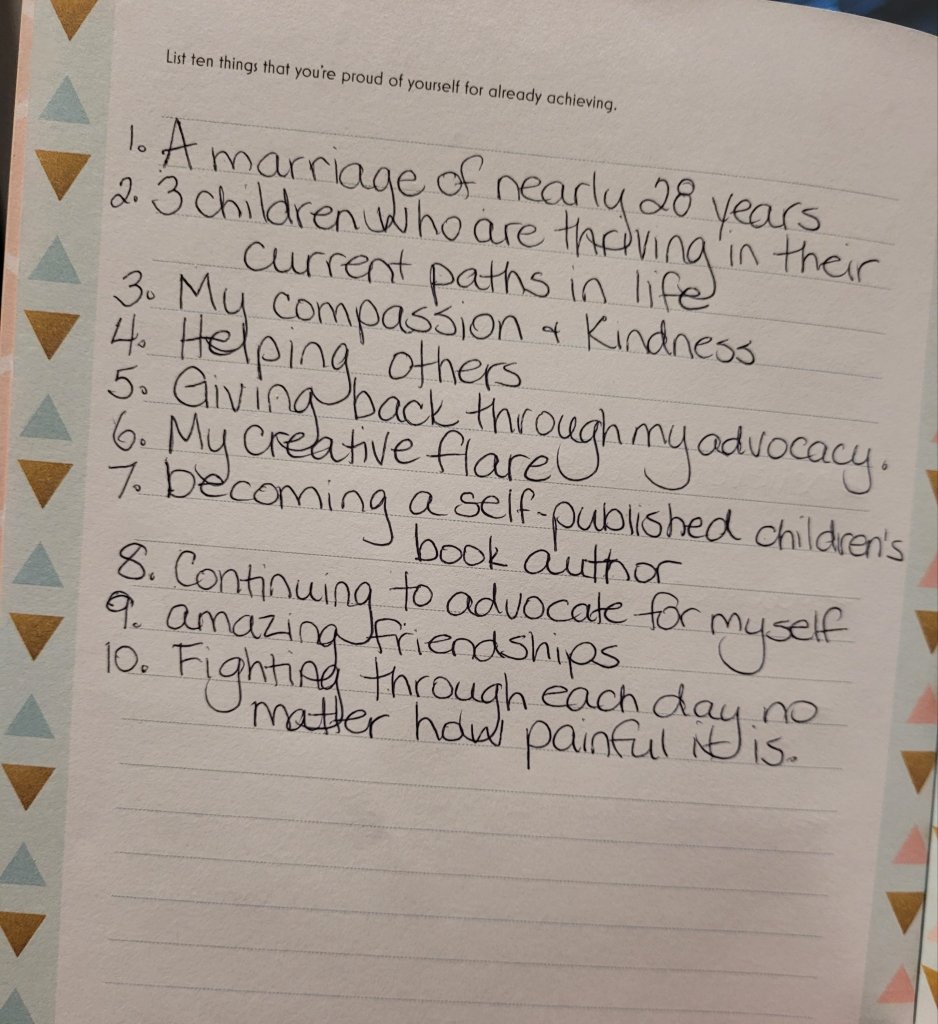 List ten things that you're proud of yourself for already achieving.
1. A marriage of nearly 28 years
2. 3 children who are thriving in their
current paths in life
3. My compassion & Kindness
4. Helping others
5. Giving back through my advocacy.
6. My creative flare
7. becoming a self-published children's
book author
8. Continuing to advocate for myself
9. amazing friendships
10. Fighting through each day no
matter how painful it is.